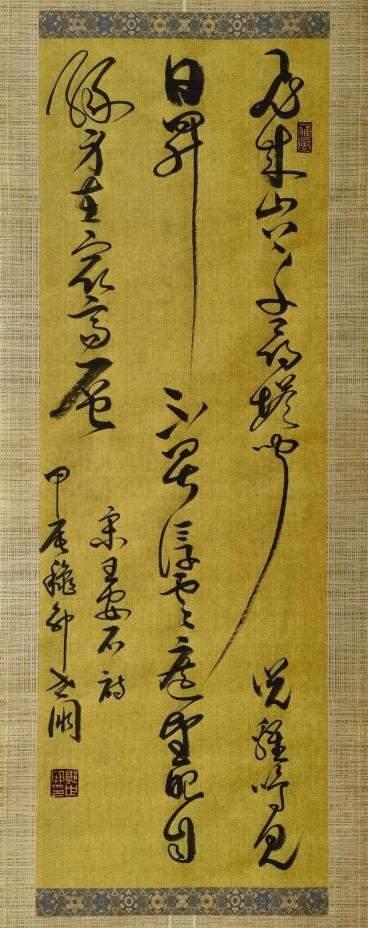 飛來山上千尋塔聞說雞鳴見
日昇不畏浮雲遮望眼自
緣身在最高層
宋王安石詩
甲辰